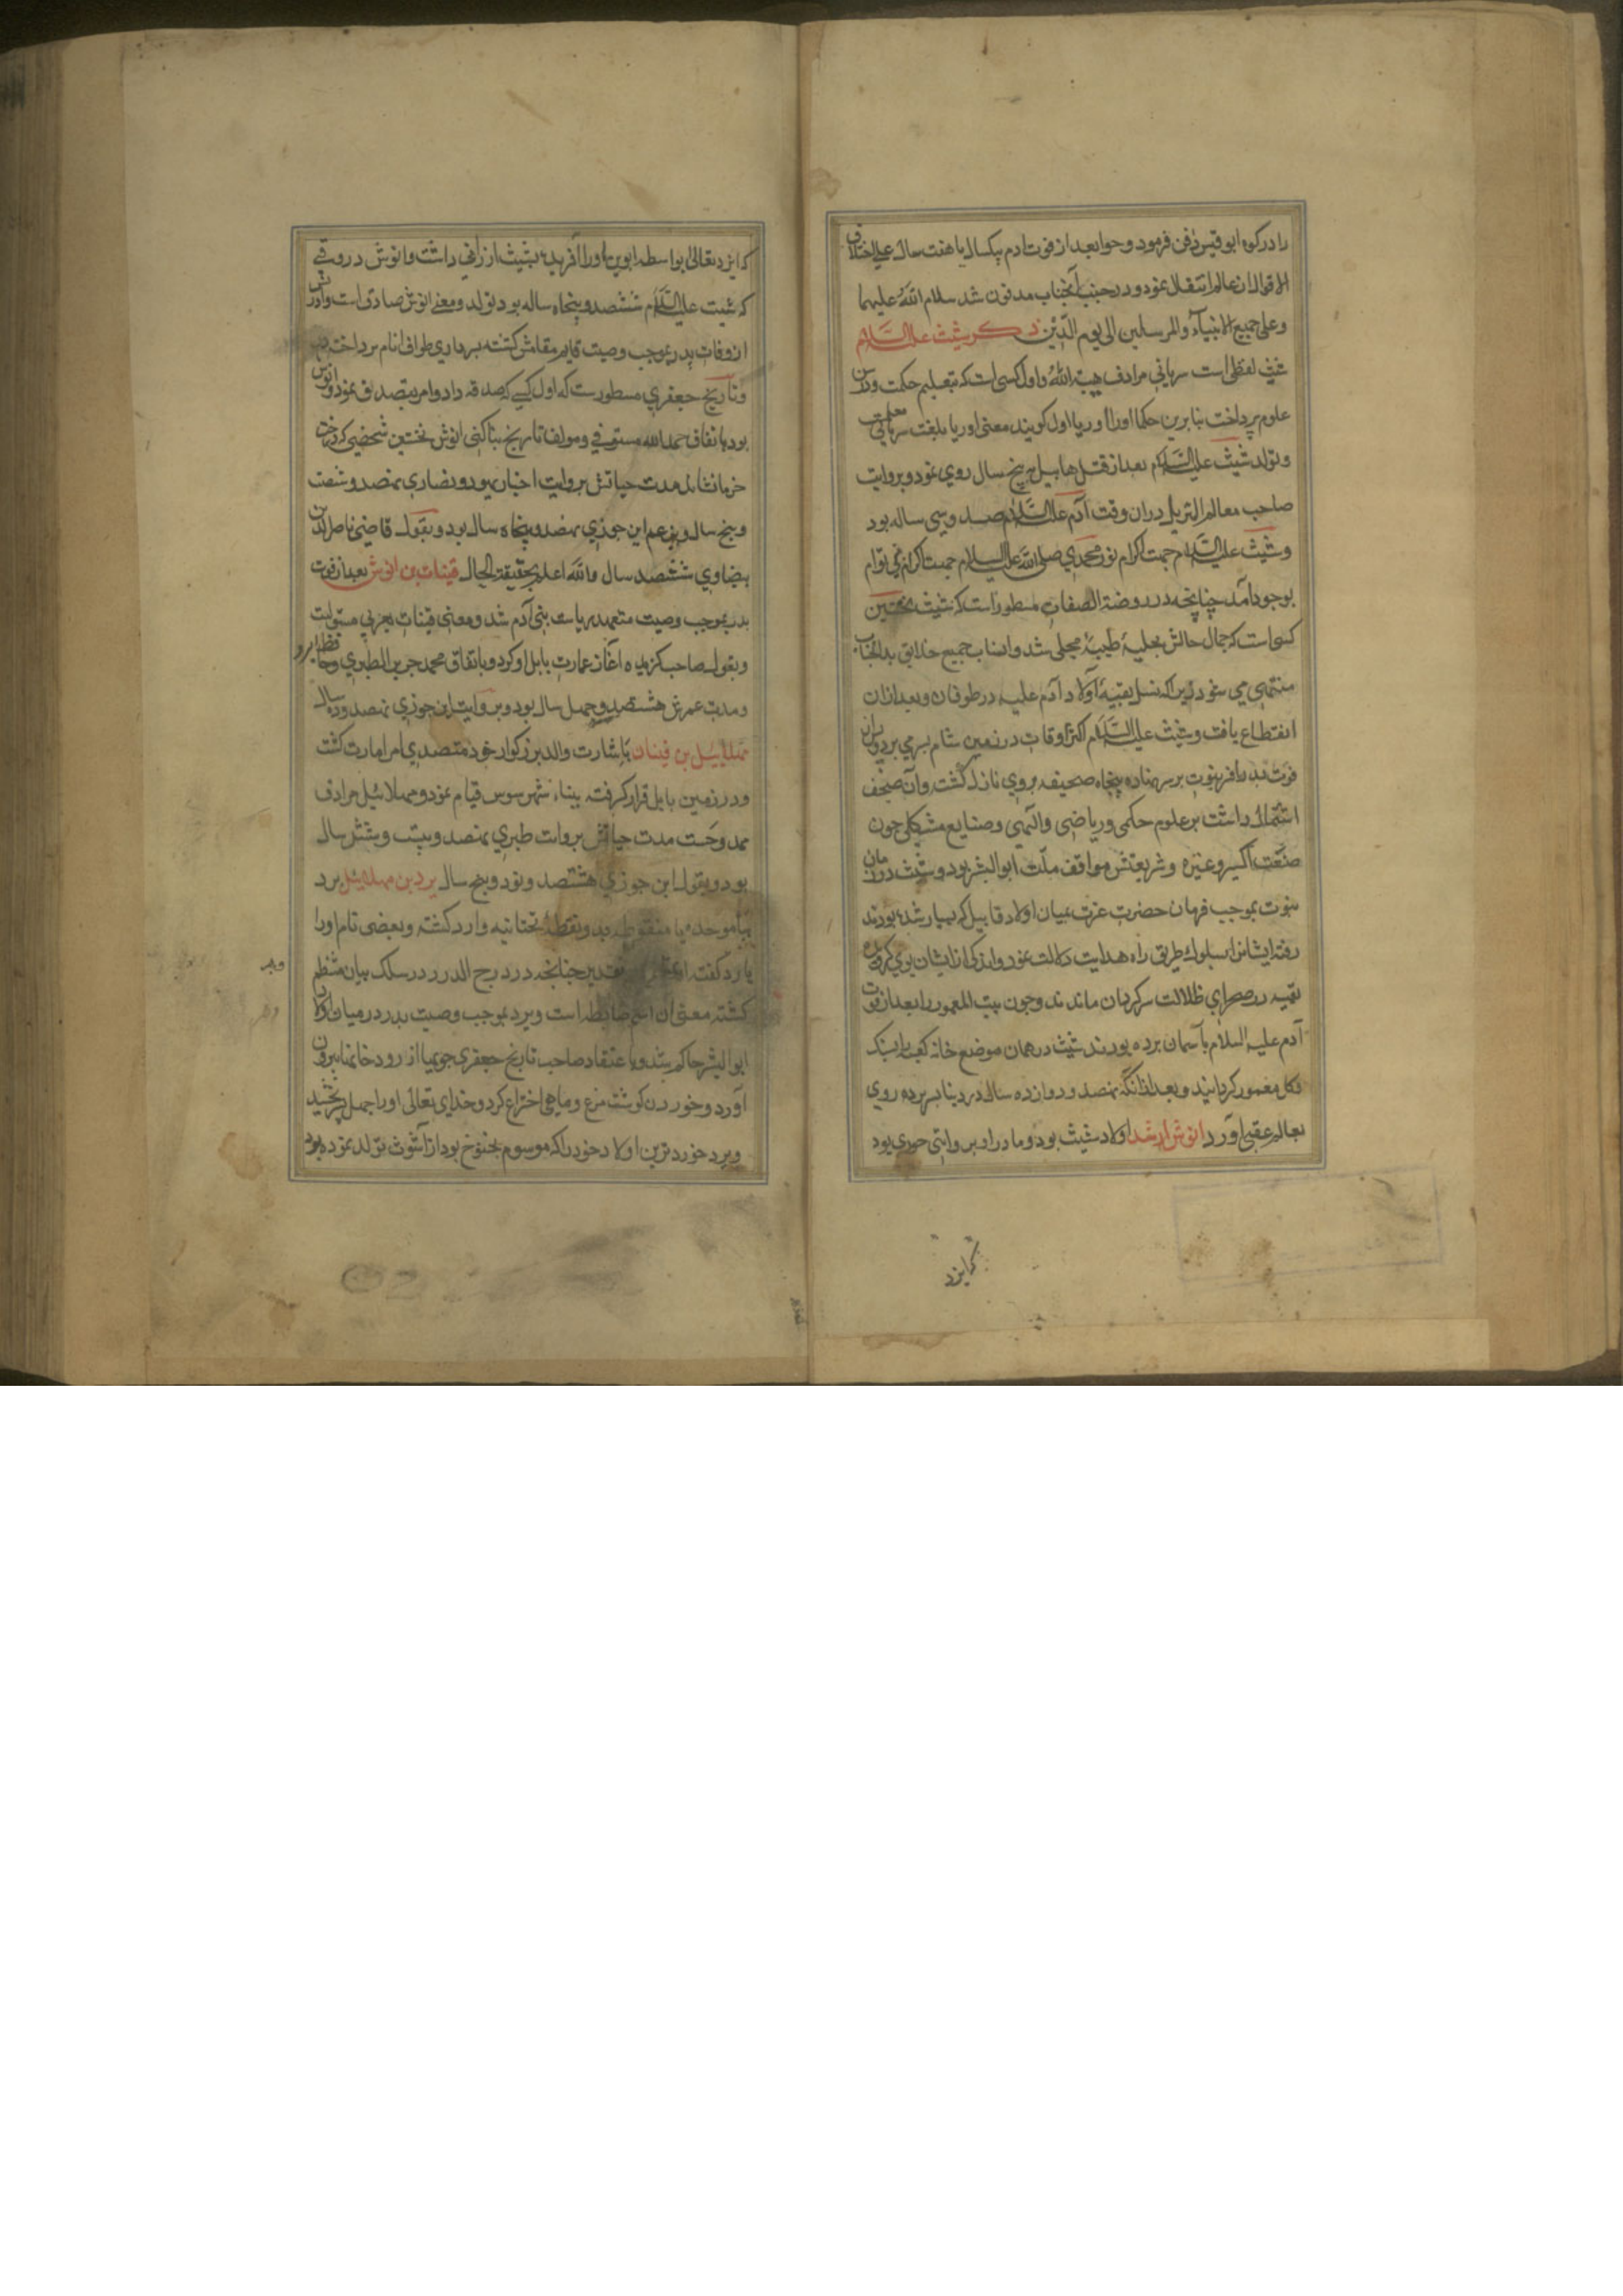 را در کوه ابو قیس دفن فرمود و حوا بعد از فوت ادم بیکسال یا هفت سال علی اختلاف
الاقوال ازن عالم انتقال نمود و در جنب آنجناب مدفون شد سلام الله علیهما
و علی جمیع الانبیآء والمرسلین الی یوم الدّین ذکر شیث علیه السَّلام
شیث لفظی است سریانی مرادف هبة الله و اول کسی است که بتعلیم حکمت و درس
علوم پرداخت بنا برین حکما اورا اوریا اول کویند معنی اوریا بلغت سریانی معلم است
و تولد شیث علیه السَّلام بعد از قتل هابیل به پنج سال روی نمود و بروایت
صاحب معالم التنزیل دران وقت آدم علیه السَّلام صد و سی ساله بود
و شیث علیه السَّلام جهت اکرام نور محمدی صلی الله علیه السلام جهت اکرام نی توام
بوجود آمد چنانچه در روضة الصفات مسطور است که شیث نخستین
کسی است که جمال حالش بحلیهٔ طیبه محلی شد و انساب جمیع خلایق بدانجناب
منتهی می شود زین که نسل بقیهٔ اولاد آدم علیه در طوفان و بعد ازان
انقطاع یافت و شیث علیه السَّلام اکثر اوقات در زمین شام بسر می برد و پس از
فوت پدر افر نبوت بر سر نهاده پنجاه صحیفه بروی نازل کشت وآن صحف
اشتمال داشت بر علوم حکمی و ریاضی والهی و صنایع مشکله چون
صنعت اکسیر و غیره و شریعتش موافق ملّت ابوالبشر بود و شیث در زمان
نبوت بموجب فرمان حضرت عزت بمیان اولاد قابیل که بسیار شده بودند
رفته ایشانرا بسلوک طریق راه هدایت دلالت نمود و اندکی از ایشان بوی کرویده
بقیه در صحرای ظلالت سرکردان ماندند و چون بیت المعمور را بعد از فوت
آدم علیه السلام بآسمان برده بودند شیث در همان موضع خانه کعبه را بسنک
و کل معمور کردانید و بعد ازانکه نهصد و دوازده سال در دنیا بسر برده روی
بعالم عقبی آورد انوش ارشد اولاد شیث بود و مادر او بر وایتی حوری بود
که ایزد
که ایزد تعالی بواسطه ابوین اورا آفریده بشیث ارزانی داشت و انوش در وقتی
که شیث علیه السَّلام ششصد و پنجاه ساله بود تولد و معنی انوش صادق است و
از وفات پدر بموجب وصیت قایم مقامش کشته بسرداری طوایف انام پرداخته
و تاریخ جعفری مسطور ست که اول کسی که صدقه داد و امر بتصدیق نمود انوش
بود باتفاق حمد الله مستوفی و مولف تاریخ بناکتی انوش نخستین شخصی که درخت
خرما نشاند مدت حیاتش بروایت احبار یهود و نصاری نهصد و شصت
و پنج سال و بزعم ابن جوزی نهصد و پنجاه سال بود و بقول قاضی ناصر الدین
بیضاوی ششصد سال والله اعلم بحقیقة الحال قینات بن انوش بعد از فوت
پدر بموجب وصیت متعهد ریاست بنی آدم شد و معنی قینات بعربی مستولیت
و بقول صاحب کزیده آغاز عمارت بابل او کرد و باتفاق محمد جریر الطبری و حافظ ابرو
و مدت عمرش هشتصد و چهل سال بود و بروایت ابن جوزی نهصد و ده سال
مهلاییل بن قینان باشارت والد بزرکوار خود متصدی امر امارت کشت
و در زمین بابل قرار کرفته ببناء شهر سوس قیام نمود و مهلائیل مرادف
ممدوحست مدت حیاتش بروایت طبری نهصد و بیست و شش سال
بود و بقول ابن جوزی هشتصد و نود و پنج سال یرد بن مهلائیل یرد
بباء موحده یا منقوطه بدو نقطهٔ تحتانیه وارد کشته و بعضی نام اورا
یارد کفته چنانچه در درج الدرر در سلک بیان منتظم
کشته معنی ان اسم ضابطه است و یرد بموجب وصیت پدر در میان اولاد
ابو البشر حاکم شد و باعتقاد صاحب تاریخ جعفری جویها از رودخانها بیرون
آورد و خوردن کوشت مرغ و ماهی اختراع کرد و خدای تعالی اورا چهل پسر بخشید
و یرد خوردترین اولاد خود را که موسوم بخنوخ بود از آشوث تولد نموده بود